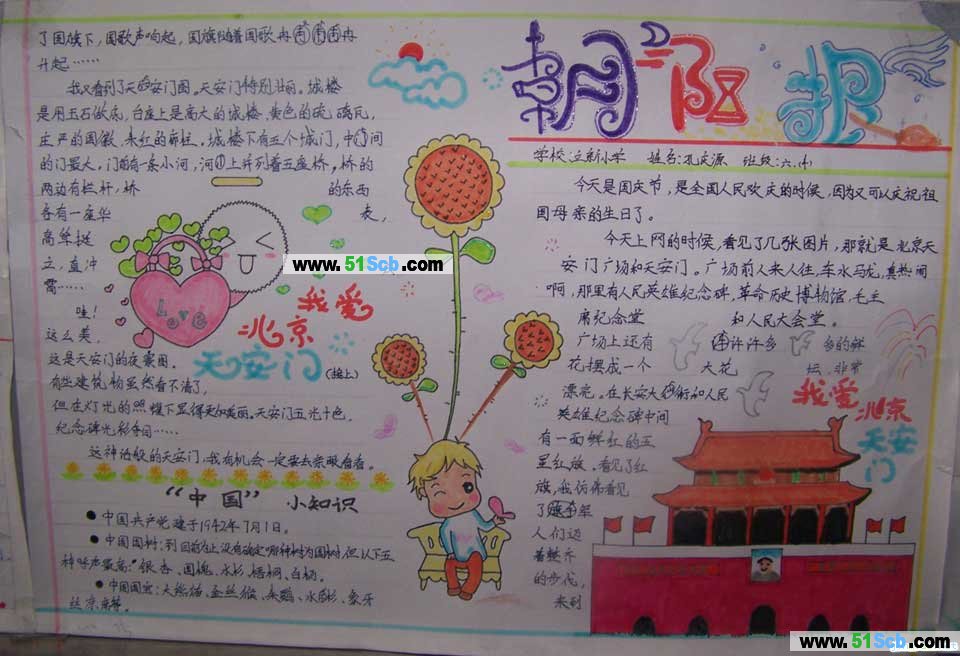 朝阳报
学校:立新小学 姓名:孔庆源 班级:六.(4)
今天是国庆节,是全国人民欢庆的时候,因为又可以庆祝祖
国母亲的生日了。
今天上网的时候,看见了几张图片,那就是北京天
安门广场和天安门。广场前人来人往,车水马龙,真热闹
啊,那里有人民英雄纪念碑,革命历史博物馆,毛主
席纪念堂 和人民大会堂。
广场上还有 许许多多的鲜
花摆成一个大花坛,非常
漂亮。在长安大街和人民
英雄纪念碑中间
有一面鲜红的五
星红旗。看见了红
旗,我仿佛看见
了
人们迈
着整齐
的步伐,
来到
我爱
北京
天安
门
了国旗下,国歌声响起,国旗随着国歌冉冉
升起……
我又看到了天安门图。天安门特别壮丽。城楼
是用玉石做底,台座上是高大的城楼,黄色的琉璃瓦,
庄严的国徽,朱红的廊柱。城楼下有五个城门,中间
的门最大,门前有一条小河,河上并列着五座桥,桥的
两边有栏杆,桥 的东西
各有一座华 表,
高耸挺
立,直冲
霄……
哇!
这么美,
这是天安门的夜景图。
有些建筑物虽然看不清了,
但在灯光的照耀下显得更加美丽。天安门五光十色,
纪念碑光彩夺目……
这神话般的天安门,我有机会一定要去亲眼看看。
Love
我爱
北京
天安门
(接上)
“中国” 小知识
●中国共产党建于1942年7月1日。
●中国国树:到目前为止没有确定哪种树为国树,但以下五
种呼声最高:银杏、国槐、水杉、梧桐、白杨。
●中国国宝:大熊猫、金丝猴、朱鹮、水杉、象牙
www.51Scb.com
www.51Scb.com